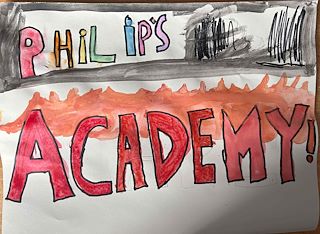 PHiLiP'S
ACADEMY!